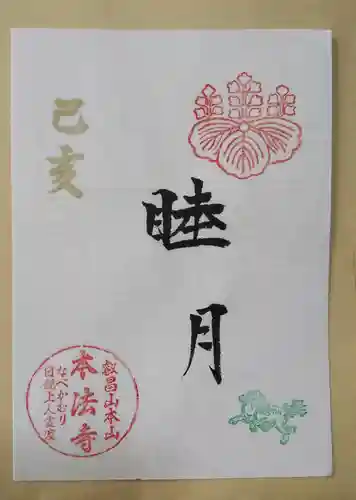 己亥
睦月
叡昌山本山
本法寺
なべかむり
日親上人霊蹟